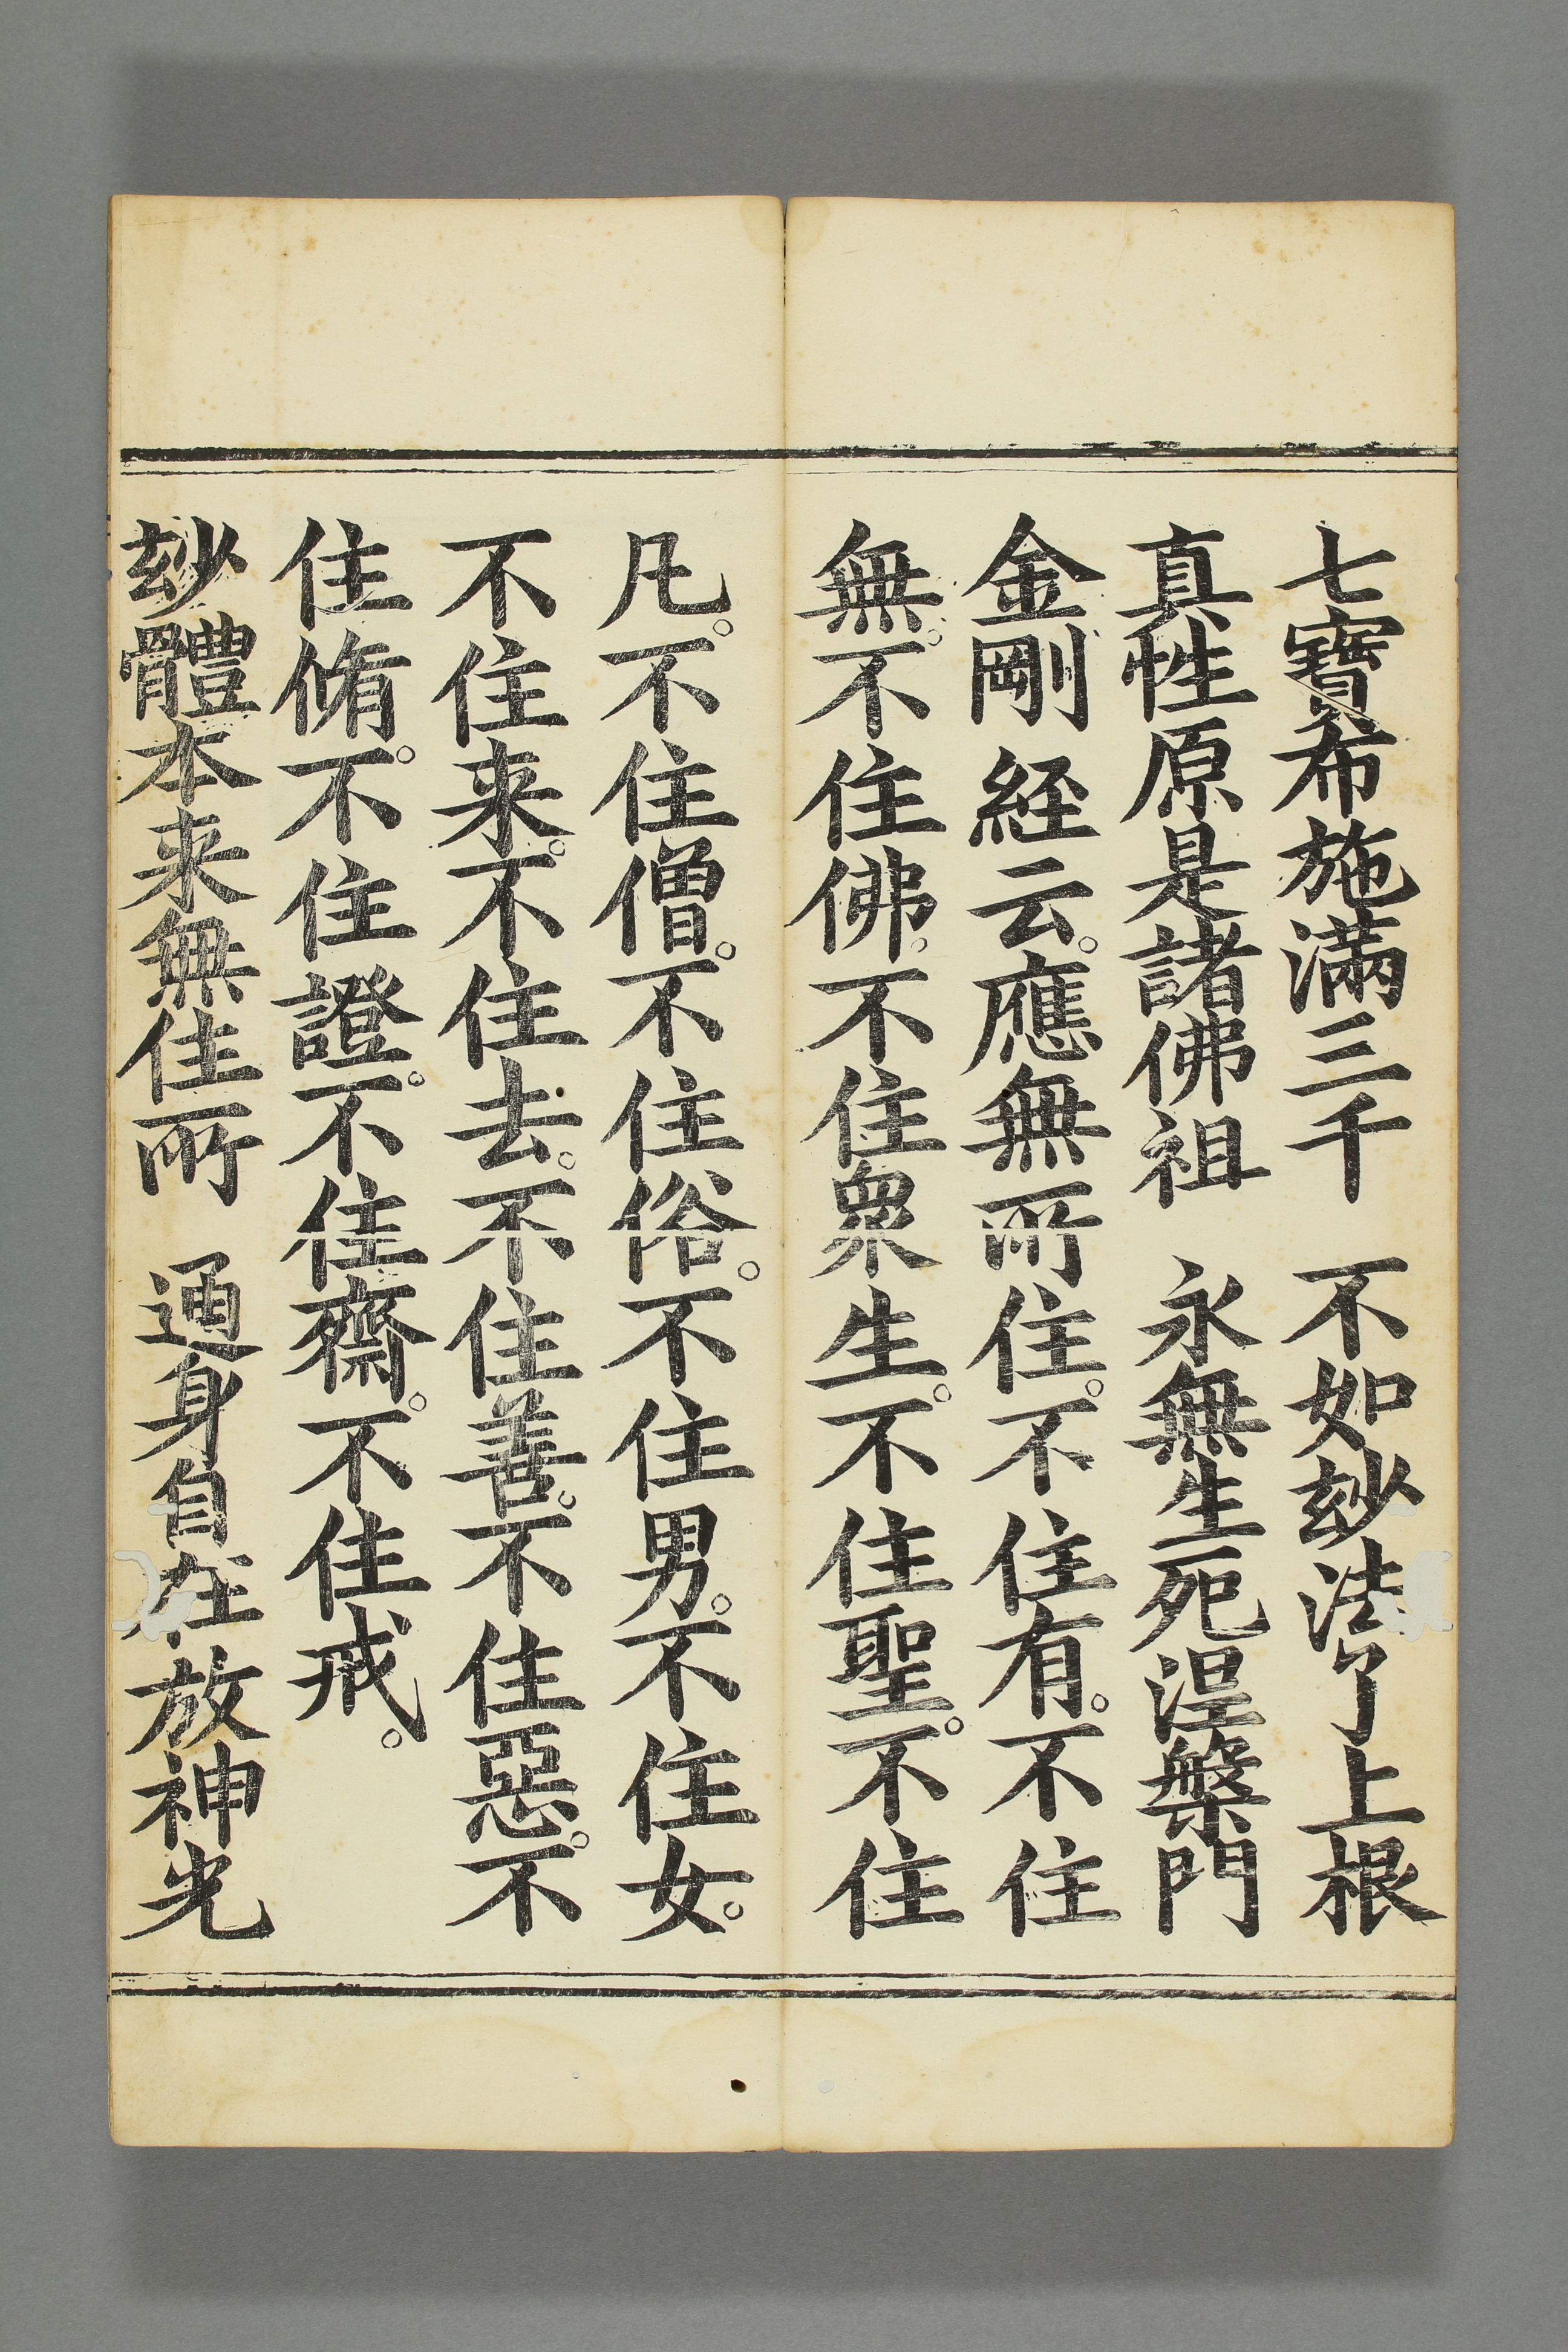 七寶布施滿三千　不如玅法了上根
真性原是諸佛祖　永無生死涅槃門
金剛經云。應無所住。不住有。不住
無。不住佛。不住衆生。不住聖。不住
凡。不住僧。不住俗。不住男。不住女。
不住来。不住去。不住善。不住惡。不
住脩。不住證。不住齋。不住戒。
玅體本来無住所　通身自在放神光